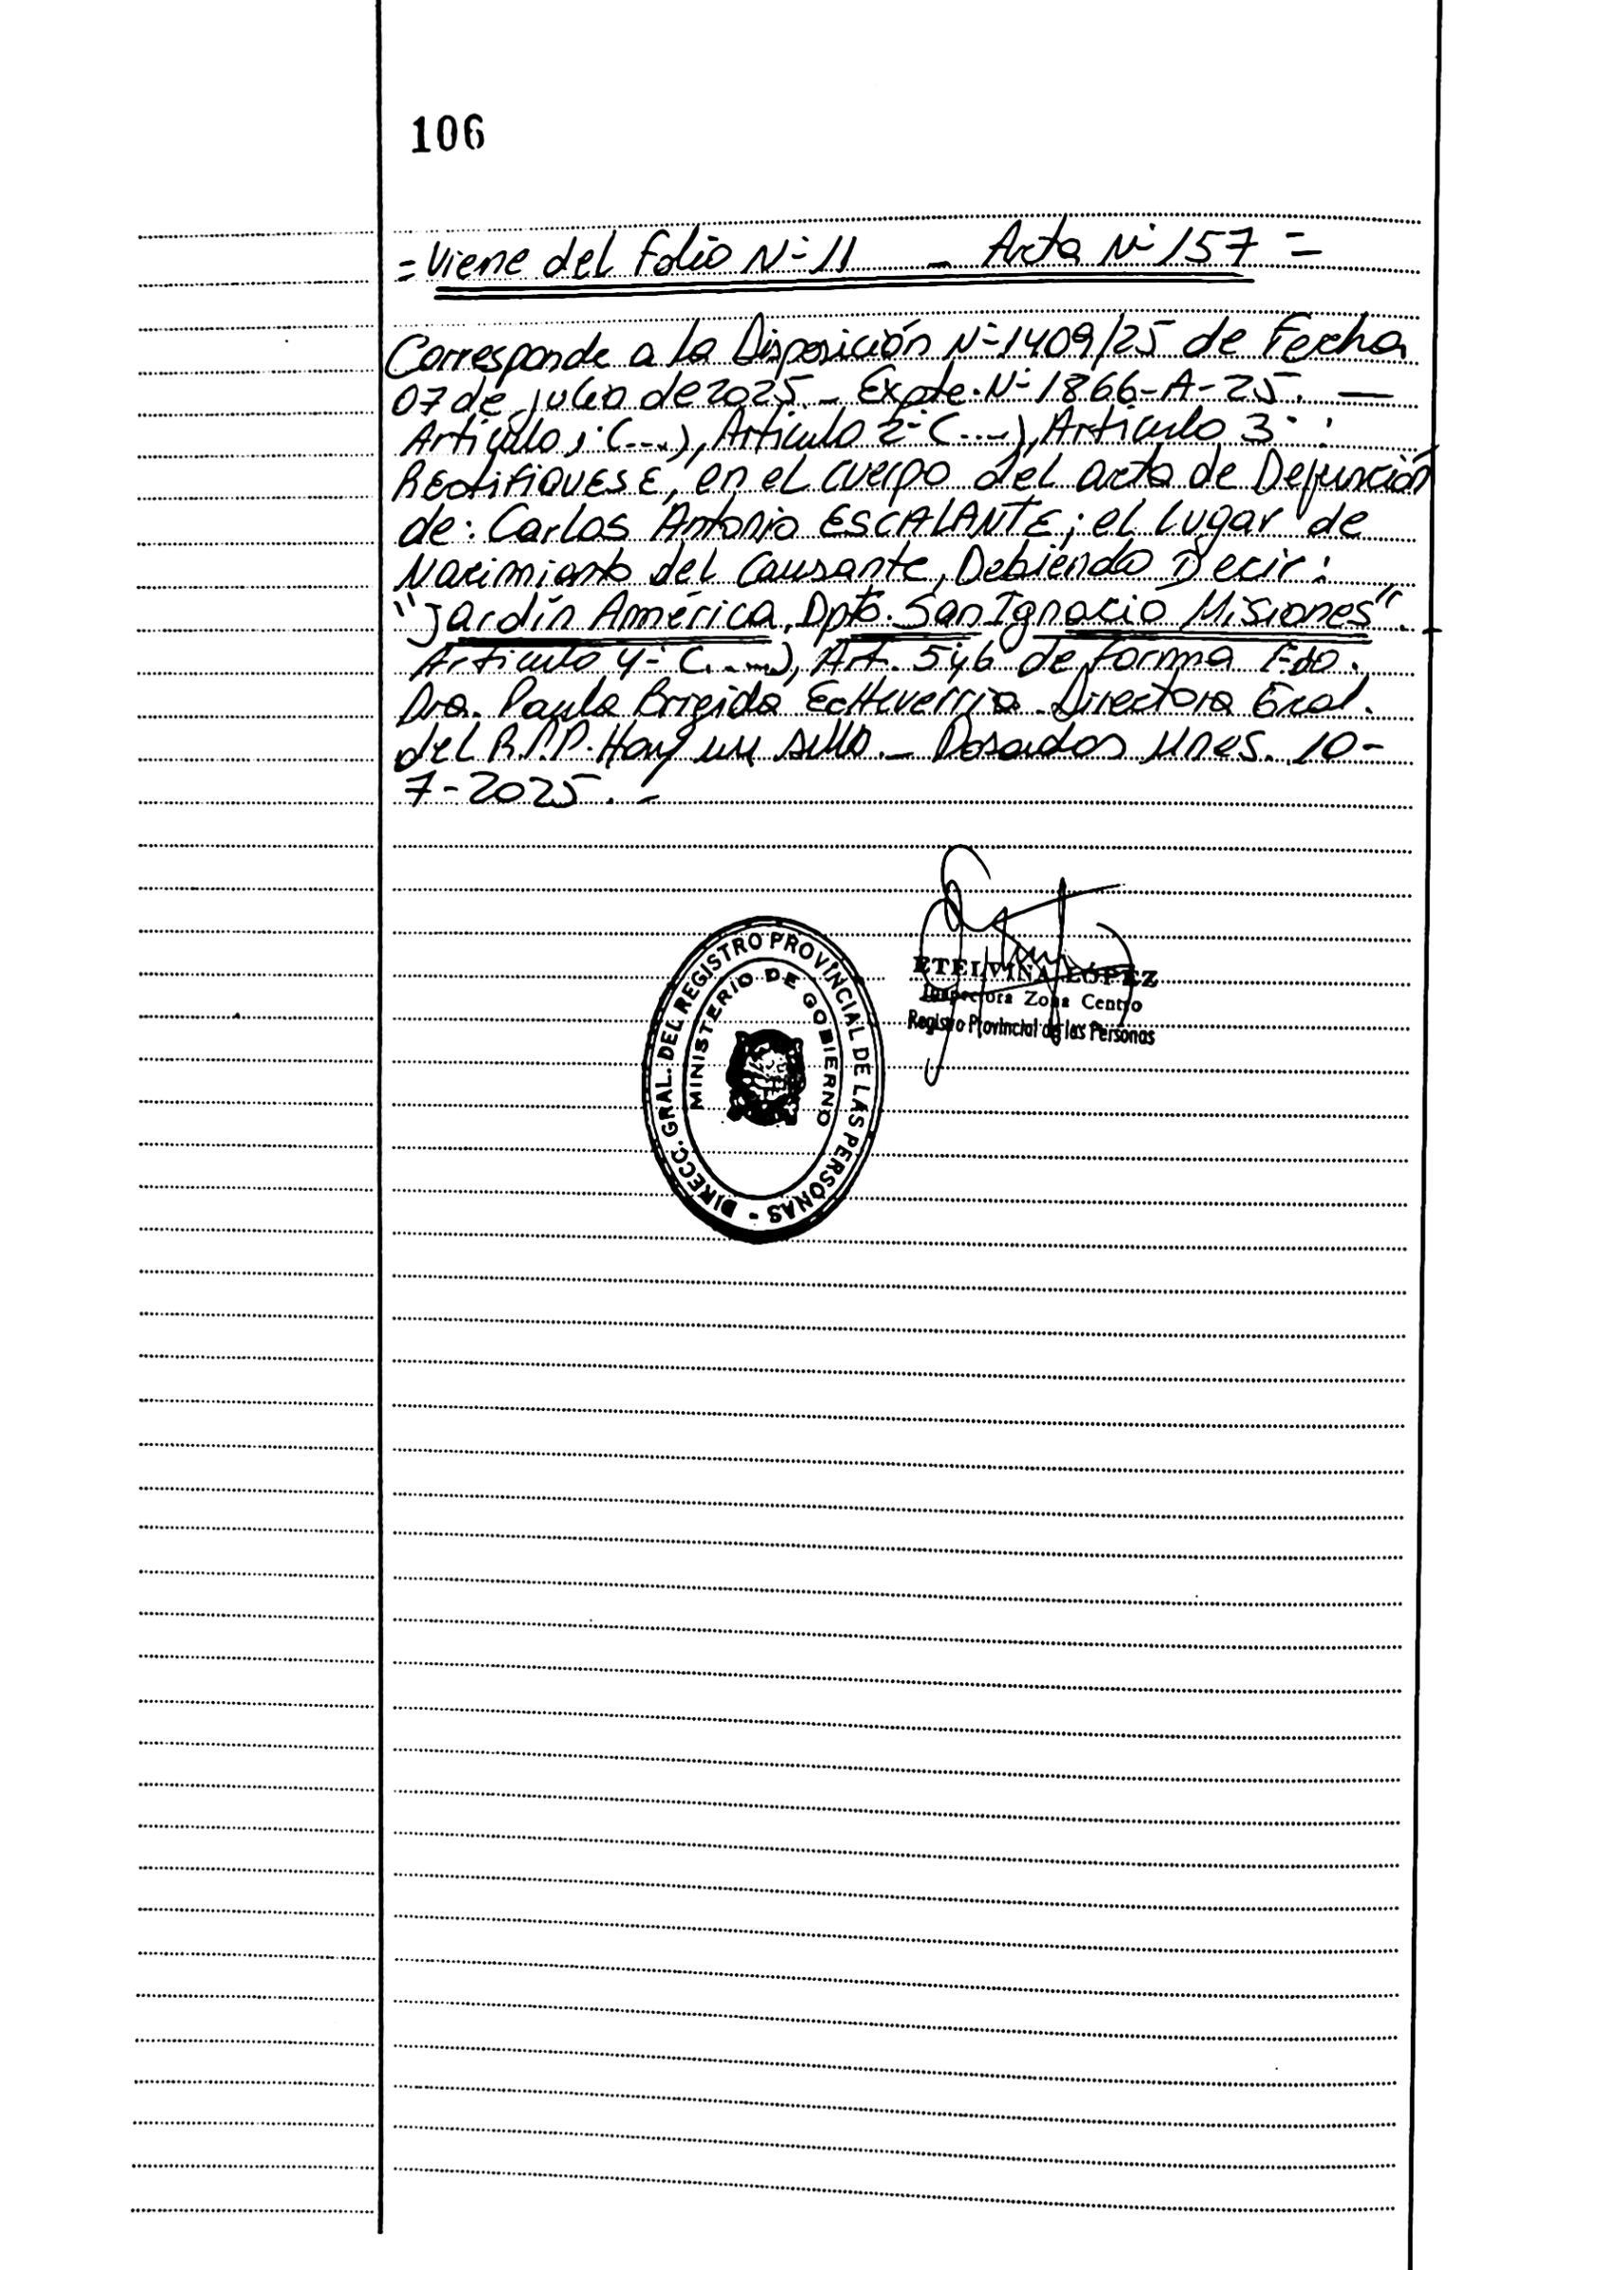 106
= Viene del Folio N- 11 - Acta N- 157 =
Corresponde a la Disposición N-1409/25 de Fecha
07 de julio de 2025.- Expte. N- 1866-A-25. —
Articulo 1- (....), Articulo 2- (....), Articulo 3- :
RECTIFIQUESE, en el cuerpo del acta de Defunción
de: Carlos Antonio ESCALANTE; el Lugar de
Nacimiento del Causante, Debiendo Decir:
"Jardín América, Dpto. San Ignacio Misiones".
Articulo 4- (....), Art. 5y6 de forma Fdo.
Dra. Paula Brigida Echeverria. Directora Gral.
del R.P.P. Hay un sello.- Posadas Mnes. 10-
7-2025. -
ETELVINA LÓPEZ
Inspectora Zona Centro
Registro Provincial de las Personas
DIRECC. GRAL. DEL REGISTRO PROVINCIAL DE LAS PERSONAS -
MINISTERIO DE GOBIERNO